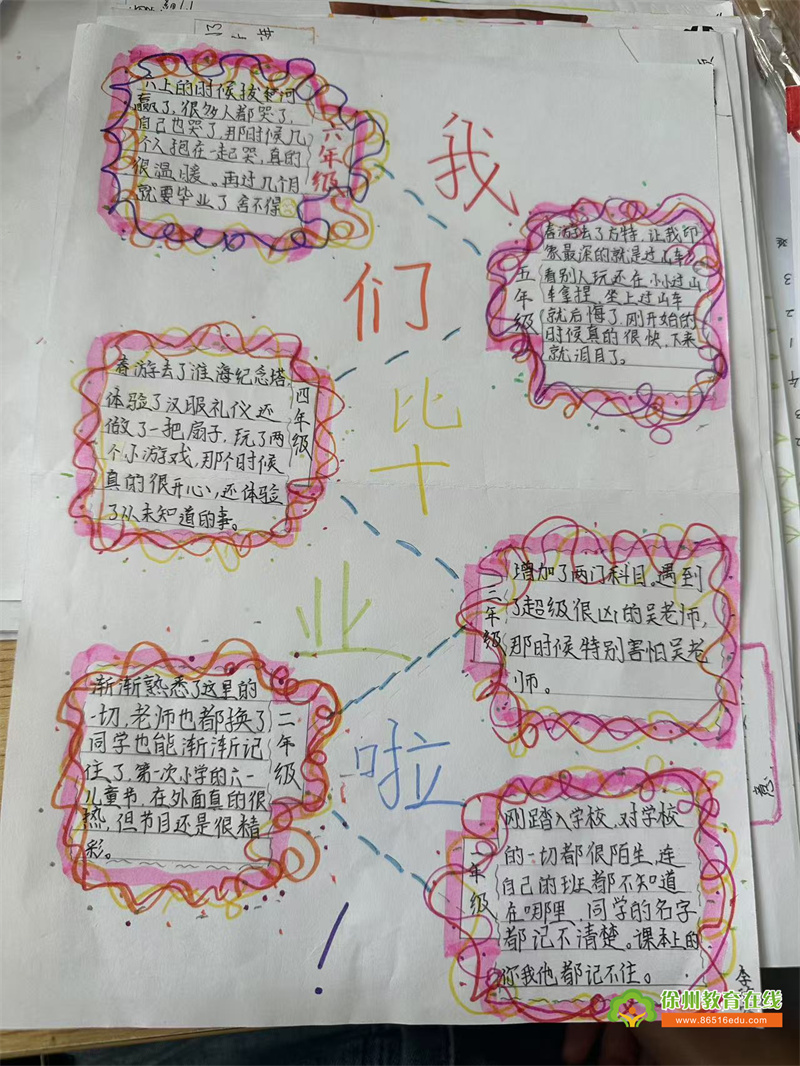 我
们
毕
业
啦
！
六年级
六上的时候拔楚河
赢了，很多人都哭了，
自己也哭了，那时候几
个人抱在一起哭，真的
很温暖。再过几个月
就要毕业了舍不得
五年级
春游去了方特，让我印
象最深的就是过山车，
看别人玩还在小小过山
车拿捏，坐上过山车
就后悔了，刚开始的
时候真的很快，下来
就泪目了。
四年级
春游去了淮海纪念塔，
体验了汉服礼仪还
做了一把扇子，玩了两
个小游戏，那个时候
真的很开心，还体验
了从未知道的事。
三年级
增加了两门科目。遇到
了超级很凶的吴老师，
那时候特别害怕吴老
师。
二年级
渐渐熟悉了这里的
一切，老师也都换了
同学也能渐渐记
住了，第一次小学的六一
儿童节，在外面真的很
热，但节目还是很精
彩。
一年级
刚踏入学校，对学校
的一切都很陌生，连
自己的班都不知道
在哪里，同学的名字
都记不清楚。课本上的
你我他都记不住。
李
徐州教育在线
www.86516edu.com